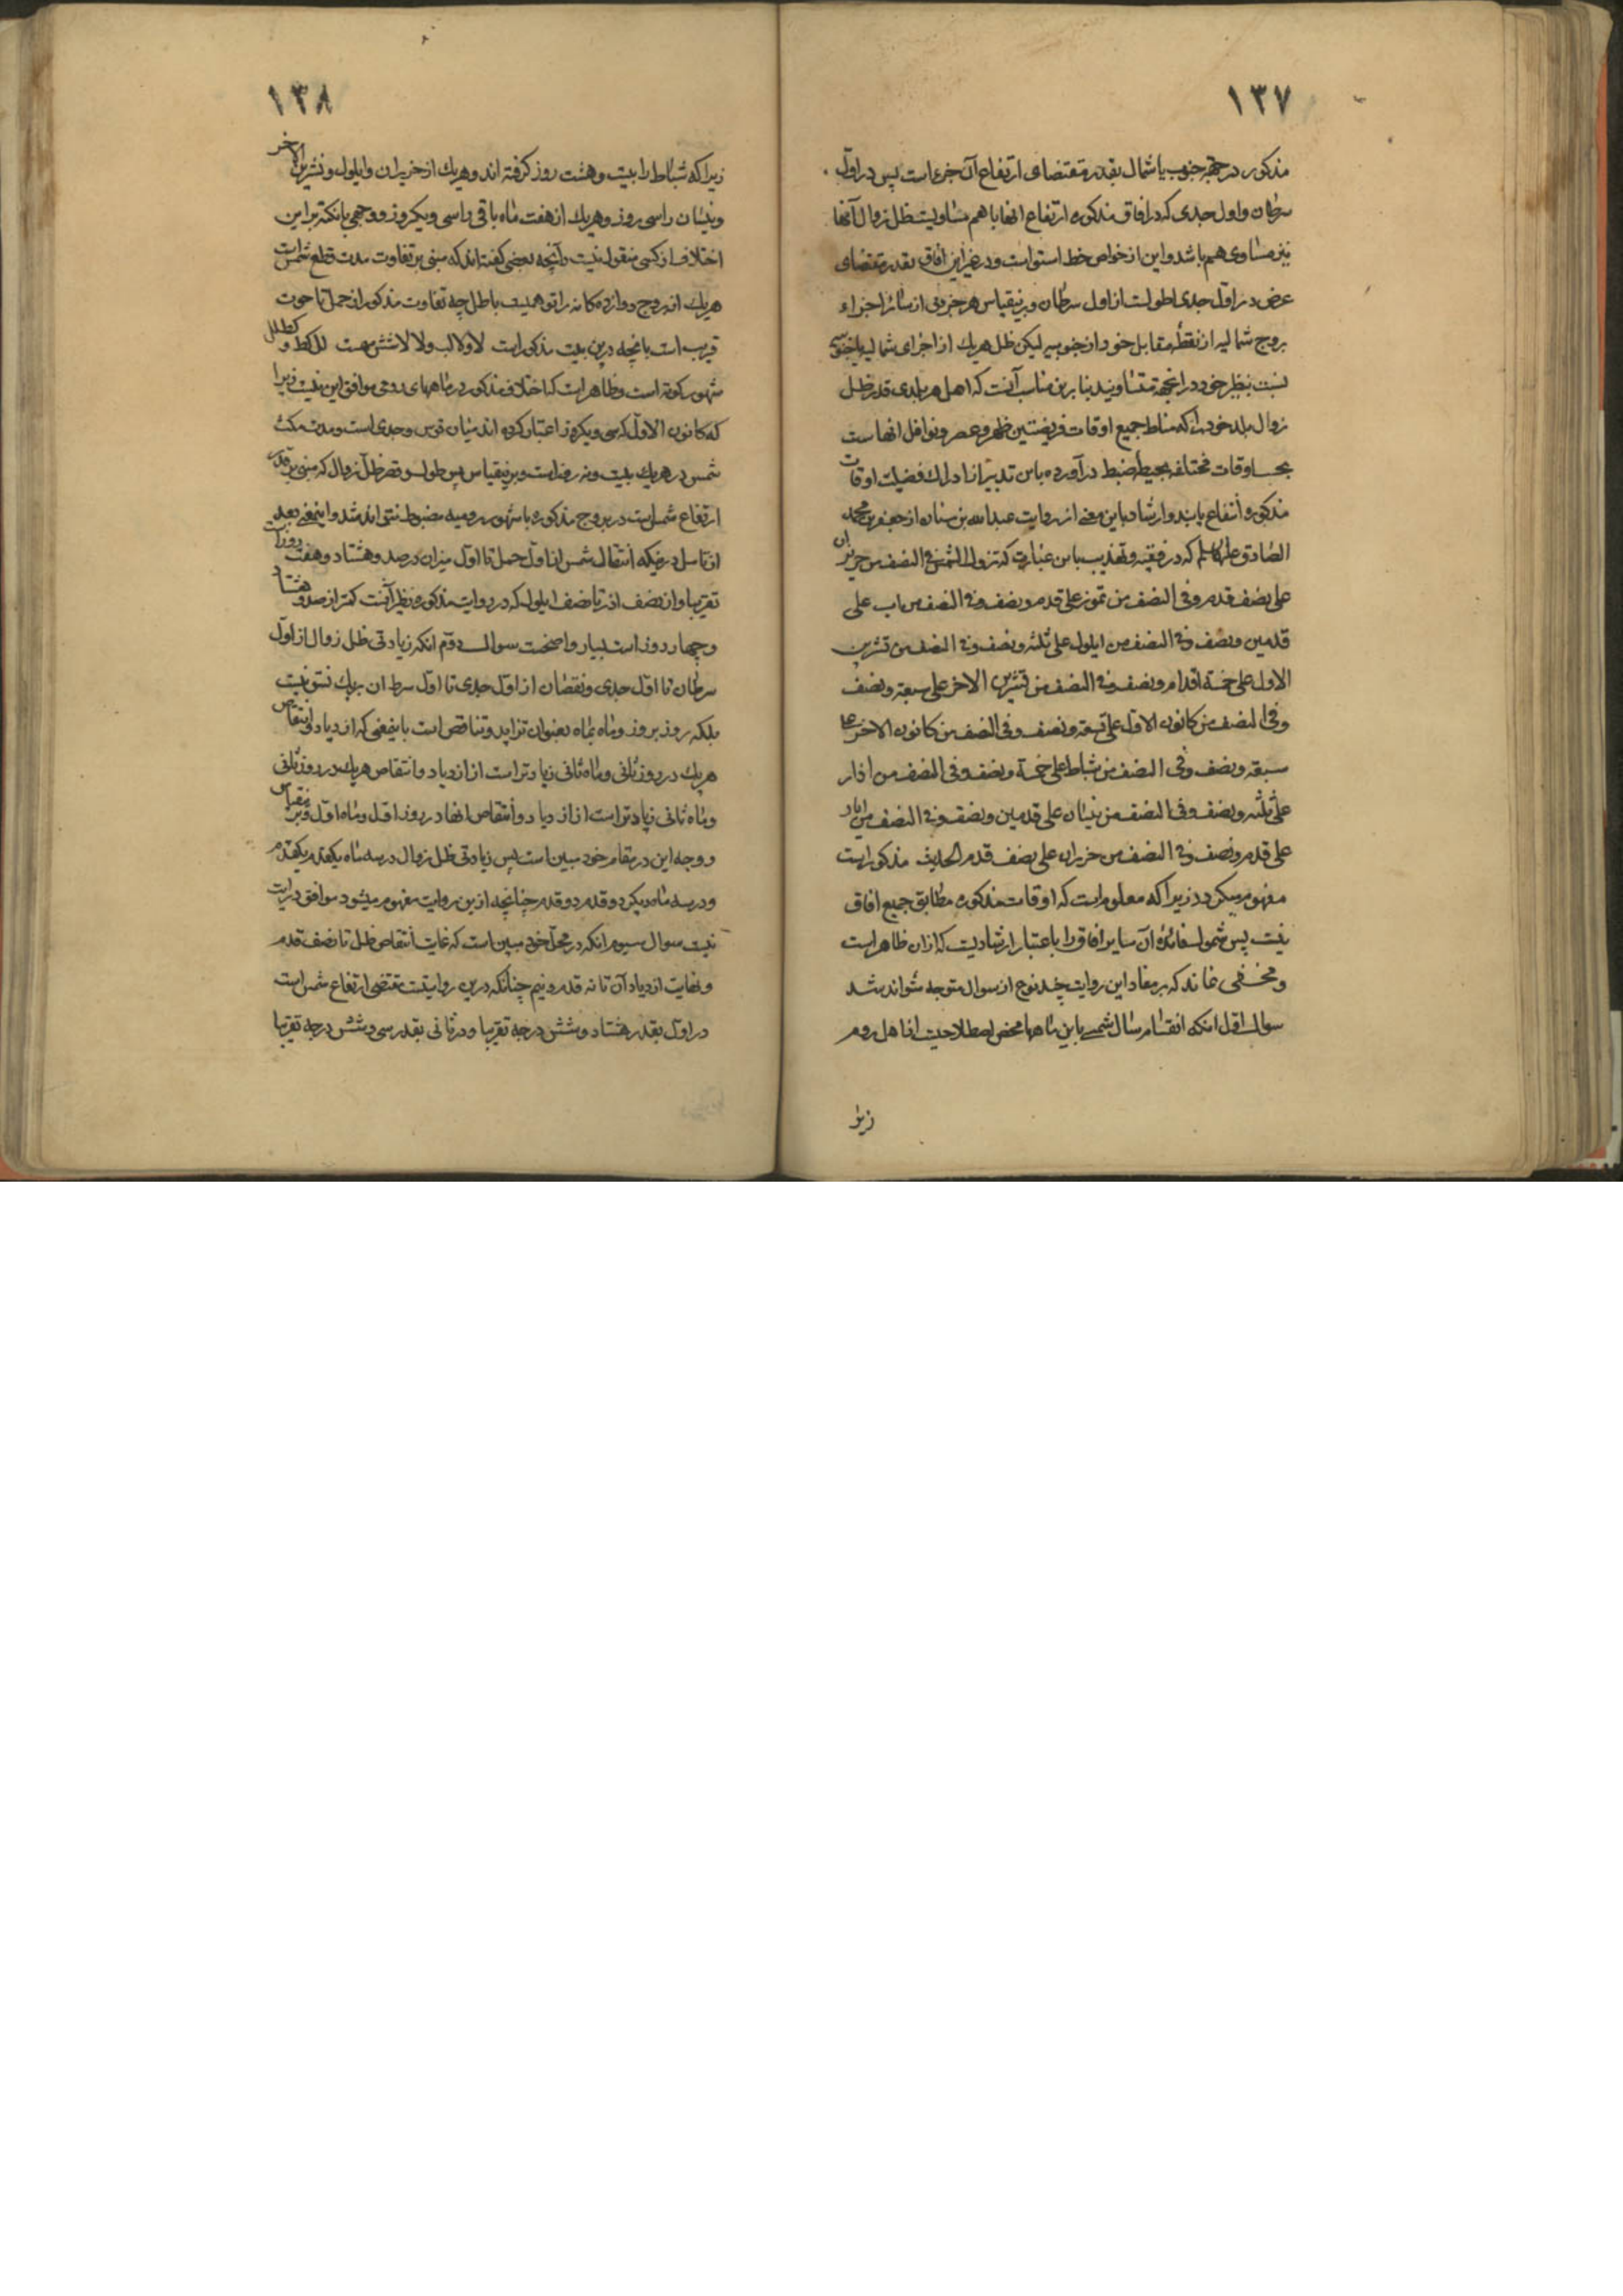 ۱۳۷
مذکور در جهة جنوب یا شمال بقدر مقتضای ارتفاع آن جزء است پس در اول
سرطان و اول جدی که در افاق مذکوره ارتفاع انها با هم مساویست ظل زوال آنها
نیز مساوی هم باشد و این از خواص خط استواست و در غیر این افاق بقدر مقتضای
عرض در اول جدی اطولست از اول سرطان و برینقیاس هر جزوی از سائر اجزاء
بروج شمالیه از نقطهٔ مقابل خود از جنوبیه لیکن ظل هریك از اجزای شمالیه یا جنوبیه
نسبت بنظیر خود در انجهة متساویند بنا برین مناسب آنست که اهل هر بلدی قدر ظل
زوال بلد خود را که مناط جمیع اوقات فریضتین ظهر و عصر و نوافل انهاست
بحسب اوقات مختلفه بحیطهٔ ضبط درآورده باین تدبیر از ادراك فضیلت اوقات
مذکوره انتفاع یابند و ارشاد باین معنی از روایت عبدالله بن سنان از جعفر بن محمد
الصادق علیهما السلم که در فقیه و تهذیب باین عبارت که تزول الشمس فی النصف من حزیران
علی نصف قدم و فی النصف من تموز علی قدم و نصف و فی النصف من اب علی
قدمین و نصف و فی النصف من ایلول علی ثلثه و نصف و فی النصف من تشرین
الاول علی خمسة اقدام و نصف و فی النصف من تشرین الاخر علی سبعة و نصف
و فی النصف من کانون الاول علی تسعة و نصف و فی النصف من کانون الاخر علی
سبعة و نصف و فی النصف من شباط علی خمسة و نصف و فی النصف من اذار
علی ثلثه و نصف و فی النصف من نیسان علی قدمین و نصف و فی النصف من ایار
علی قدم و نصف و فی النصف من حزیران علی نصف قدم الحدیث مذکور است
مفهوم میگردد زیرا که معلوم است که اوقات مذکوره مطابق جمیع افاق
نیست پس شمول فائدهٔ آن سایر افاق را باعتبار ارشادیست که ازان ظاهر است
و مخفی نماند که بر مفاد این روایت چند نوع از سوال متوجه تواند شد
سوال اول انکه انقسام سال شمسی باین ماهها محض اصطلاحیت از اهل روم
زیرا
۱۳۸
زیرا که شباط را بیست و هشت روز گرفته اند و هریك از حزیران و ایلول و تشرین الاخر
و نیسان را سی روز و هریك از هفت ماه باقی را سی و یکروز و وجهی یا نکتهٔ بر این
اختلاف از کسی منقول نیست و آنچه بعضی گفته اند که مبنی بر تفاوت مدت قطع شمس است
هریك از بروج دوازده کانه را توهمیست باطل چه تفاوت مذکور از حمل تا حوت
قریب است بانچه درین بیت مذکور است لا ولا لب ولا لا شش مهست لل کط و کط لل
شهور کوته است و ظاهر است که اختلاف مذکور در ماههای رومی موافق این نیست زیرا
که کانون الاول که سی و یکروز اعتبار کرده اند میان قوس و جدی است و مدت مکث
شمس در هریك بیست و نه روز است و برینقیاس پس طول و قصر ظل زوال که مبنی بر قدر
ارتفاع شمس است در بروج مذکوره با شهور رومیه مضبوط نتواند شد و اینمعنی بعد
از تامل در اینکه انتقال شمس از اول حمل تا اول میزان در صد و هشتاد و هفت روز است
تقریبا و از نصف اذار تا نصف ایلول که در روایت مذکوره نظیر آنست کمتر از صد و هشتاد
و چهار روز است بسیار واضحست سوال دوم انکه زیادتی ظل زوال از اول
سرطان تا اول جدی و نقصان از اول جدی تا اول سرطان بریك نسق نیست
بلکه روز بروز و ماه بماه بعنوان تزاید و تناقص است باینمعنی که ازدیاد و انتقاص
هریك در روز ثانی و ماه ثانی زیادتر است از ازدیاد و انتقاص هریك در روز ثانی
و ماه ثانی زیادتر است از ازدیاد و انتقاص انها در روز اول و ماه اول و برینقیاس
و وجه این در مقام خود مبین است پس زیادتی ظل زوال در سه ماه یکقدم یکقدم
و در سه ماه دیگر دو قدم دو قدم چنانچه ازین روایت مفهوم میشود موافق درایت
نیست سوال سیوم انکه در محل خود مبین است که غایت انتقاص ظل تا نصف قدم
و نهایت ازدیاد آن تا نه قدم و نیم چنانکه درین روایتست مقتضی ارتفاع شمس است
در اول بقدر هشتاد و شش درجه تقریبا و در ثانی بقدر سی و شش درجه تقریبا